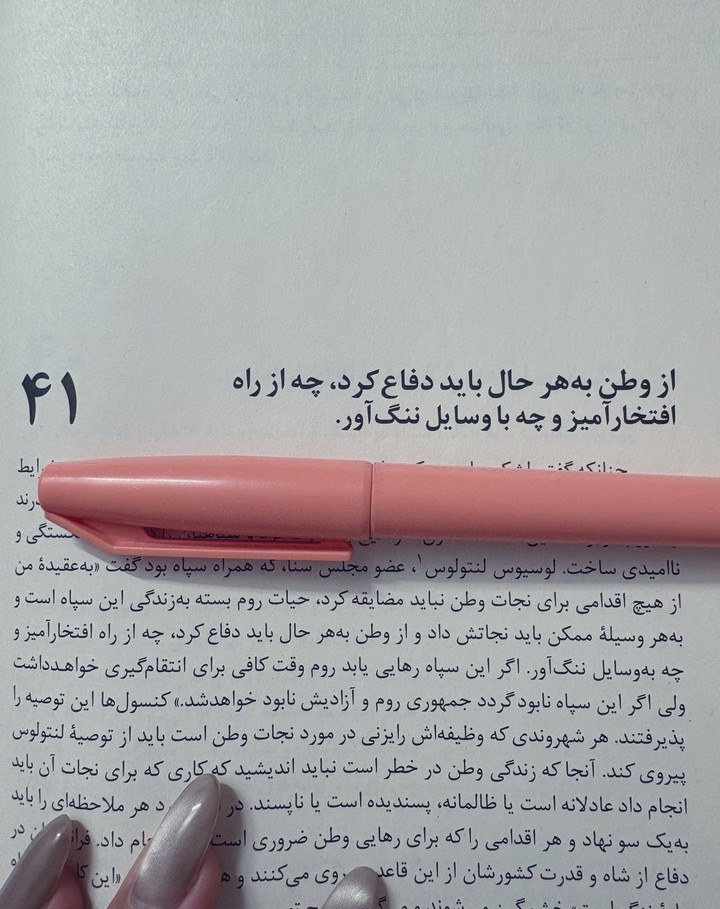 ۴۱
از وطن به‌هر حال باید دفاع کرد، چه از راه
افتخارآمیز و چه با وسایل ننگ‌آور.
چنانکه گفته
ناامیدی ساخت. لوسیوس لنتولوس۱، عضو مجلس سنا، که همراه سپاه بود گفت «به‌عقیدهٔ من
از هیچ اقدامی برای نجات وطن نباید مضایقه کرد، حیات روم بسته به‌زندگی این سپاه است و
به‌هر وسیلهٔ ممکن باید نجاتش داد و از وطن به‌هر حال باید دفاع کرد، چه از راه افتخارآمیز و
چه به‌وسایل ننگ‌آور. اگر این سپاه رهایی یابد روم وقت کافی برای انتقام‌گیری خواهدداشت
ولی اگر این سپاه نابود گردد جمهوری روم و آزادیش نابود خواهدشد.» کنسول‌ها این توصیه را
پذیرفتند. هر شهروندی که وظیفه‌اش رایزنی در مورد نجات وطن است باید از توصیهٔ لنتولوس
پیروی کند. آنجا که زندگی وطن در خطر است نباید اندیشید که کاری که برای نجات آن باید
انجام داد عادلانه است یا ظالمانه، پسندیده است یا ناپسند. در هر ملاحظه‌ای را باید
به‌یک سو نهاد و هر اقدامی را که برای رهایی وطن ضروری است داد. در
دفاع از شاه و قدرت کشورشان از این می‌کنند و